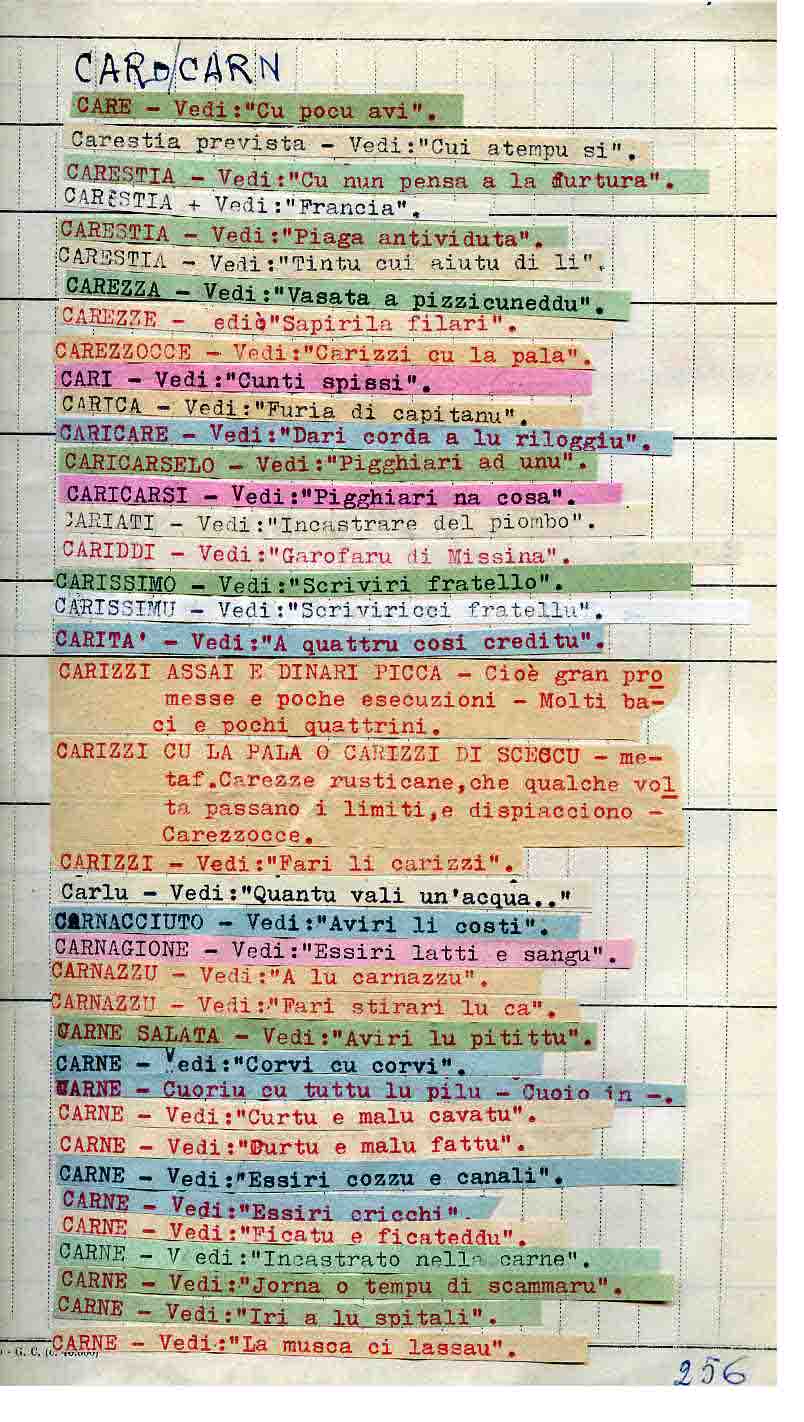 CARD/CARN
CARE - Vedi:"Cu pocu avi".
Carestia prevista - Vedi:"Cui atempu si".
CARESTIA - Vedi:"Cu nun pensa a la furtura".
CARESTIA + Vedi:"Francia".
CARESTIA - Vedi:"Piaga antividuta".
CARESTIA - Vedi:"Tintu cui aiutu di li".
CAREZZA - Vedi:"Vasata a pizzicuneddu".
CAREZZE - ediò"Sapirila filari".
CAREZZOCCE - Vedi:"Carizzi cu la pala".
CARI - Vedi:"Cunti spissi".
CARICA - Vedi:"Furia di capitanu".
CARICARE - Vedi:"Dari corda a lu riloggiu".
CARICARSELO - Vedi:"Pigghiari ad unu".
CARICARSI - Vedi:"Pigghiari na cosa".
CARIATI - Vedi:"Incastrare del piombo".
CARIDDI - Vedi:"Garofaru di Missina".
CARISSIMO - Vedi:"Scriviri fratello".
CARISSIMU - Vedi:"Scriviricci fratellu".
CARITA' - Vedi:"A quattru cosi creditu".
CARIZZI ASSAI E DINARI PICCA - Cioè gran pro
messe e poche esecuzioni - Molti ba-
ci e pochi quattrini.
CARIZZI CU LA PALA O CARIZZI DI SCESCU - me-
taf.Carezze rusticane,che qualche vol
ta passano i limiti,e dispiacciono -
Carezzocce.
CARIZZI - Vedi:"Fari li carizzi".
Carlu - Vedi:"Quantu vali un'acqua.."
CARNACCIUTO - Vedi:"Aviri li costi".
CARNAGIONE - Vedi:"Essiri latti e sangu".
CARNAZZU - Vedi:"A lu carnazzu".
CARNAZZU - Vedi:"Fari stirari lu ca".
CARNE SALATA - Vedi:"Aviri lu pitittu".
CARNE - Vedi:"Corvi cu corvi".
CARNE - Cuoriu cu tuttu lu pilu - Cuoio in -.
CARNE - Vedi:"Curtu e malu cavatu".
CARNE - Vedi:"Curtu e malu fattu".
CARNE - Vedi:"Essiri cozzu e canali".
CARNE - Vedi:"Essiri cricchi".
CARNE - Vedi:"Ficatu e ficateddu".
CARNE - V edi:"Incastrato nella carne".
CARNE - Vedi:"Jorna o tempu di scammaru".
CARNE - Vedi:"Iri a lu spitali".
CARNE - Vedi:"La musca ci lassau".
256